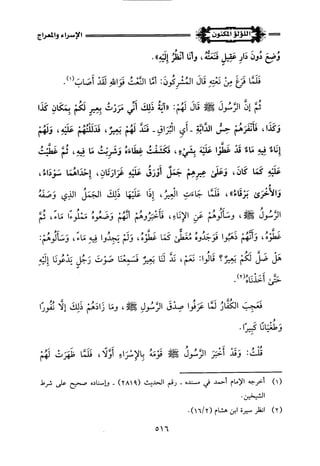 اللؤلؤ المكنون
الإسراء والمعراج
وُضِعَ دُونَ دَارِ عَقِيلٍ فَنَعَتُّهُ، وأنا أنْظُرُ إِلَيْهِ».
فَلَمَّا فَرَغَ مِنْ نَعْتِهِ قَالَ المُشْرِكُونَ: أمَّا النَّعْتُ فَوَاللهِ لَقَدْ أصَابَ(١).
ثُمَّ إنَّ الرَّسُولَ ﷺ قَالَ لَهُمْ: «آيَةُ ذلِكَ أَنِّي مَرَرْتُ بِعِيرٍ لَكُمْ بِمَكَانِ كَذَا
وَكَذَا، فَأَنْفَرَهُمْ حِسُّ الدَّابَّةِ - أي البُرَاقِ - فَنَدَّ لَهُمْ بَعِيرٌ، فَدَلَلْتُهُمْ عَلَيْهِ، وَلَهُمْ
إنَاءٌ فِيهِ مَاءٌ قَدْ غَطَّوْا عَلَيْهِ بِشَيْءٍ، فَكَشَفْتُ غِطَاءَهُ وَشَرِبْتُ مَا فِيهِ، ثُمَّ غَطَّيْتُ
عَلَيْهِ كَمَا كَانَ، وَعَلَى عِيرِهِمْ جَمَلٌ أوْرَقُ عَلَيْهِ غَرَارَتَانِ، إحْدَاهُمَا سَوْدَاءُ،
وَالأُخْرَى بَرْقَاءُ»، فَلَمَّا جَاءَتِ العِيرُ، إذَا عَلَيْهَا ذلِكَ الجَمَلُ الذِي وَصَفَهُ
الرَّسُولُ ﷺ، وَسَأَلُوهُمْ عَنِ الإنَاءِ، فَأَخْبَرُوهُمْ أنَّهُمْ وَضَعُوهُ مَمْلُوءًا مَاءً، ثُمَّ
غَطَّوْهُ، وَأنَّهُمْ ذَهَبُوا فَوَجَدُوهُ مُغَطَّى كَمَا غَطَّوْهُ، وَلَمْ يَجِدُوا فِيهِ مَاءً، وَسَأَلُوهُمْ:
هَلْ ضَلَّ لَكُمْ بَعِيرٌ؟ قَالُوا: نَعَمْ، نَدَّ لَنَا بَعِيرٌ فَسَمِعْنَا صَوْتَ رَجُلٍ يَدْعُونَا إِلَيْهِ
حَتَّى أخَذْنَاهُ(٢).
فَعَجِبَ الكُفَّارُ لَمَّا عَرَفُوا صِدْقَ الرَّسُولِ ﷺ، وَمَا زَادَهُمْ ذلِكَ إلَّا نُفُورًا
وَطُغْيَانًا كَبِيرًا.
قُلْتُ: وَقَدْ أخْبَرَ الرَّسُولُ ﷺ قَوْمَهُ بِالإسْرَاءِ أوَّلًا، فَلَمَّا ظَهَرَتْ لَهُمْ
(١) أخرجه الإمام أحمد في مسنده - رقم الحديث (٢٨١٩) - وإسناده صحيح على شرط
الشيخين.
(٢) انظر سيرة ابن هشام (١٦/٢).
٥١٦